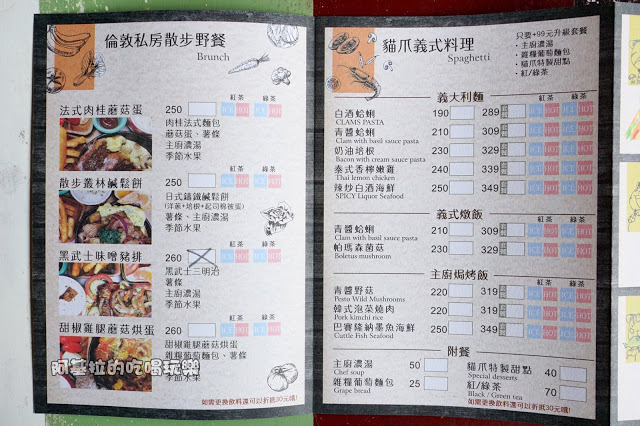 倫敦私房散步野餐
Brunch
紅茶 綠茶
法式肉桂蘑菇蛋 250 ICE HOT ICE HOT
肉桂法式麵包
蘑菇蛋、薯條
主廚濃湯
季節水果
紅茶 綠茶
散步叢林鹹鬆餅 250 ICE HOT ICE HOT
日式鑄鐵鹹鬆餅
(洋蔥+培根+起司棉被蛋)
薯條、主廚濃湯
季節水果
紅茶 綠茶
黑武士味噌豬排 260 ICE HOT ICE HOT
黑武士三明治
主廚濃湯
季節水果
紅茶 綠茶
甜椒雞腿蘑菇烘蛋 260 ICE HOT ICE HOT
甜椒雞腿蘑菇烘蛋
雜糧葡萄麵包、薯條
季節水果
如需更換飲料還可以折抵30元哦!
貓爪義式料理
Spaghetti
只要+99元升級套餐
・主廚濃湯
・雜糧葡萄麵包
・貓爪特製甜點
・紅/綠茶
義大利麵 紅茶 綠茶
白酒蛤蜊 190 289 ICE HOT ICE HOT
CLAMS PASTA
青醬蛤蜊 210 309 ICE HOT ICE HOT
Clam with basil sauce pasta
奶油培根 230 329 ICE HOT ICE HOT
Bacon with cream sauce pasta
泰式香檸嫩雞 240 339 ICE HOT ICE HOT
Thai lemon chicken
辣炒白酒海鮮 250 349 ICE HOT ICE HOT
SPICY Liquor Seafood
義式燉飯 紅茶 綠茶
青醬蛤蜊 210 309 ICE HOT ICE HOT
Clam with basil sauce pasta
帕瑪森菌菇 230 329 ICE HOT ICE HOT
Boletus mushroom
主廚焗烤飯 紅茶 綠茶
青醬野菇 220 319 ICE HOT ICE HOT
Pesto Wild Mushrooms
韓式泡菜燒肉 220 319 ICE HOT ICE HOT
Pork kimchi rice
巴賽隆納墨魚海鮮 250 349 ICE HOT ICE HOT
Cuttle Fish Seafood
附餐
主廚濃湯 50 貓爪特製甜點 40
Chef soup Special desserts
雜糧葡萄麵包 25 紅/綠茶 70
Grape bread Black / Green tea
如需更換飲料還可以折抵30元哦!
阿基拉的吃喝玩樂